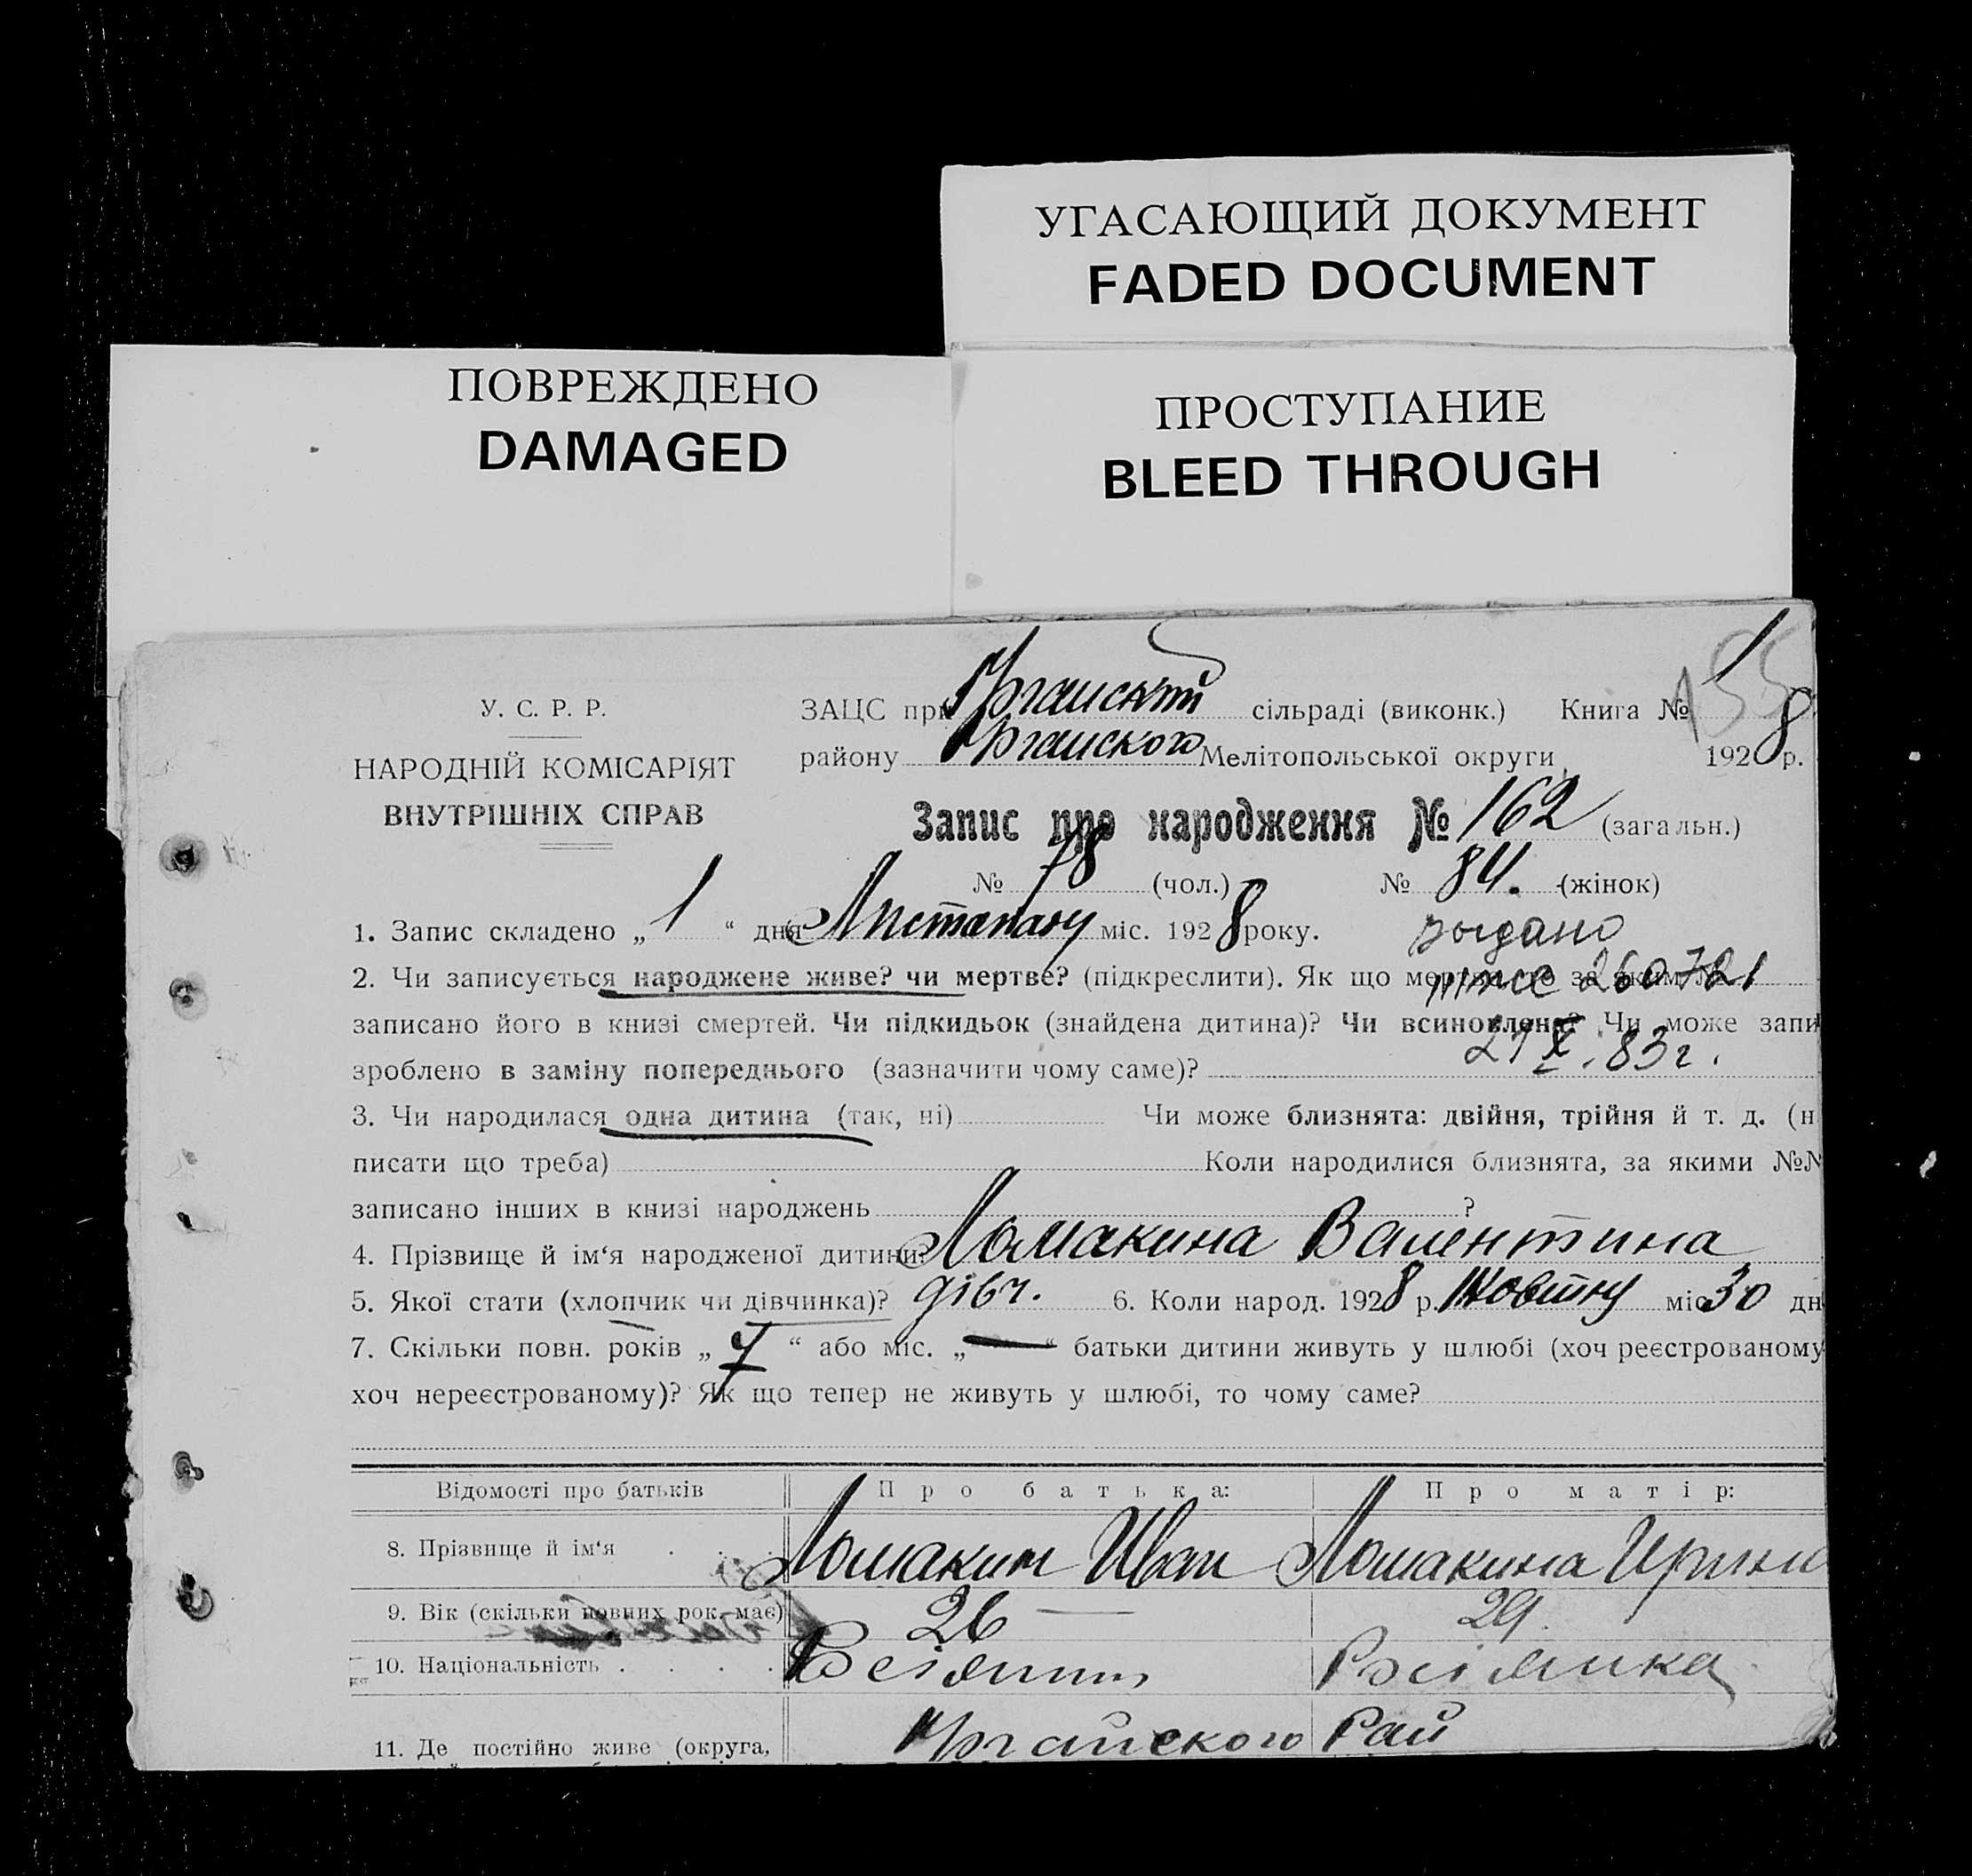 УГАСАЮЩИЙ ДОКУМЕНТ
FADED DOCUMENT
ПОВРЕЖДЕНО
DAMAGED
ПРОСТУПАНИЕ
BLEED THROUGH
У. С. Р. Р.
НАРОДНІЙ КОМІСАРІЯТ
ВНУТРІШНІХ СПРАВ
ЗАЦС при сільраді (виконк.) Книга №
району Мелітопольської округи 1928 р.
Запис про народження № 162 (загальн.)
№ 78 (чол.) № 84. (жінок)
1. Запис складено „ 1 “ дня Листопаду міс. 1928 року.
выдано
2. Чи записується народжене живе? чи мертве? (підкреслити). Як що
260721
записано його в книзі смертей. Чи підкидьок (знайдена дитина)? Чи всиновлена? Чи може запи
21 X. 83 г.
зроблено в заміну попереднього (зазначити чому саме)?
3. Чи народилася одна дитина (так, ні) Чи може близнята: двійня, трійня й т. д. (н
писати що треба) Коли народилися близнята, за якими №№
записано інших в книзі народжень ?
4. Прізвище й ім‘я народженої дитини? Ломакина Валентина
5. Якої стати (хлопчик чи дівчинка)? дівч. 6. Коли народ. 1928 р. Жовтню міс 30 дн
7. Скільки повн. років „ 4 “ або міс. „ — “ батьки дитини живуть у шлюбі (хоч реєстрованому
хоч нереєстрованому)? Як що тепер не живуть у шлюбі, то чому саме?
Відомості про батьків Про батька: Про матір:
8. Прізвище й ім‘я Ломакин Иван Ломакина Ирина
9. Вік (скільки повних рок. має) 26 29.
10. Національність Росіянин Росіянка
11. Де постійно живе (округа, Рай